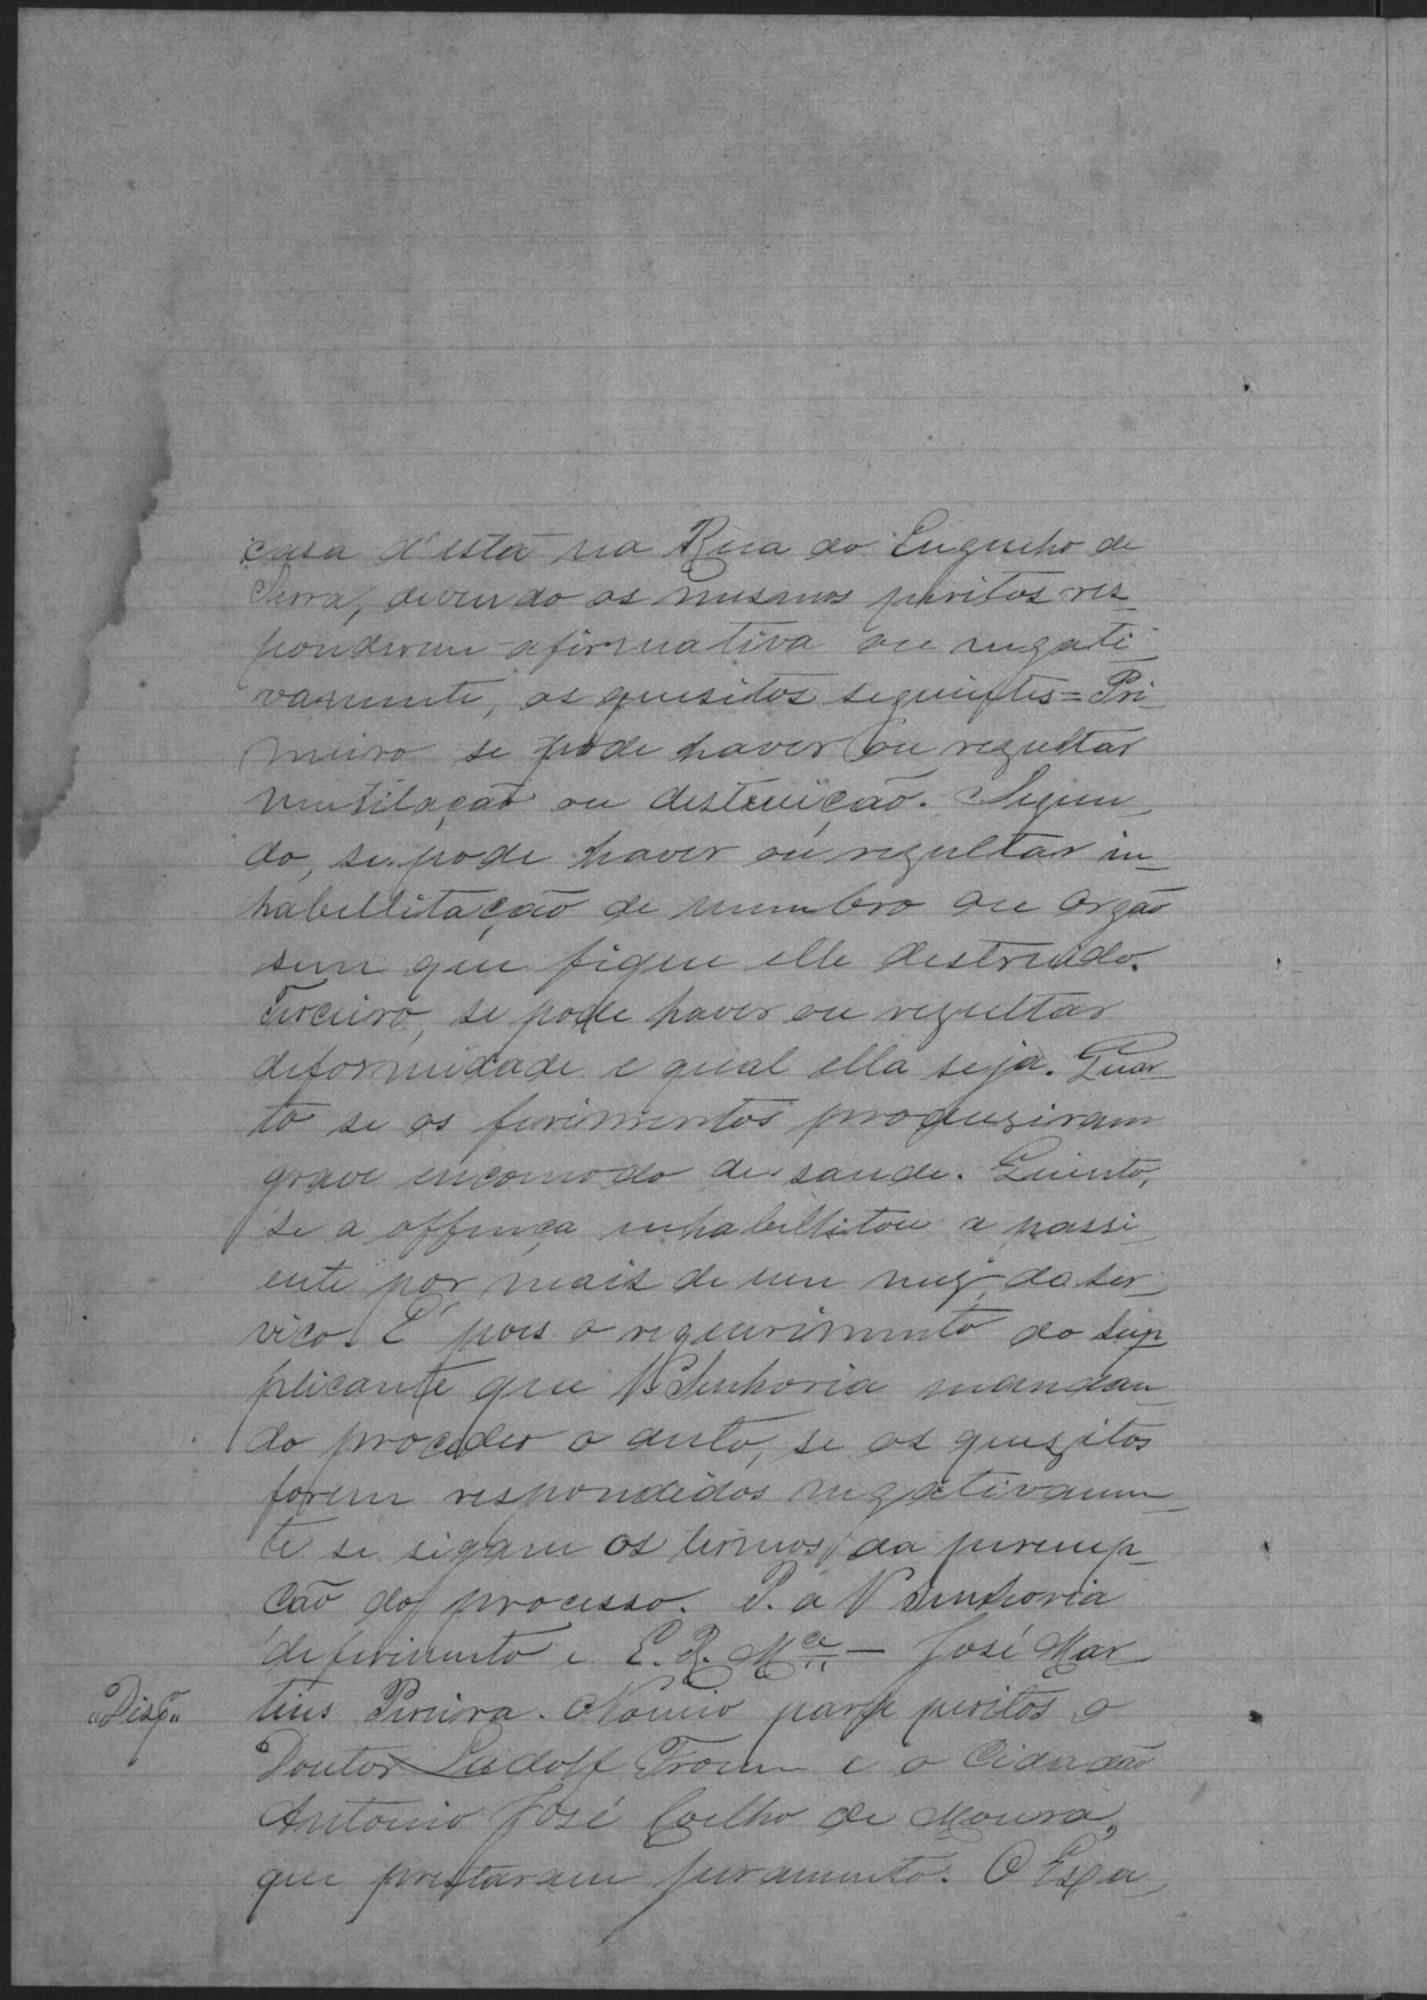 casa d'esta na Rua do Engenho de
Serra, devendo os mesmos peritos res_
ponderem afirmativa ou negati_
vamente, os quesitos seguintes = Pri_
meiro se pode haver ou rezultar
mutilação ou destruição. Segun_
do, se pode haver ou rezultar in_
habellitação de membro ou orgão
sem que fique elle destruido.
Terceiro, se pode haver ou rezultar
deformidade e qual ella seja. Quar_
to se os ferimentos produziram
grave encomodo de saude. Quinto,
se a offença inhabellitou a passi_
ente por mais de um mez do ser_
viço. E' pois o requerimento do Sup_
plicante que V. Senhoria mandan_
do proceder o auto, se os quezitos
forem respondidos negativamen_
te se sigam os termos da peremp_
ção do processo. P. a V Senhoria
deferimento e E. R. M.ce — José Mar_
"Desp" tins Pereira. Nomeio para peritos o
Doutor Ludolf Fromm e o Cidadão
Antonio José Coelho de Moura,
que prestaram juramento. O